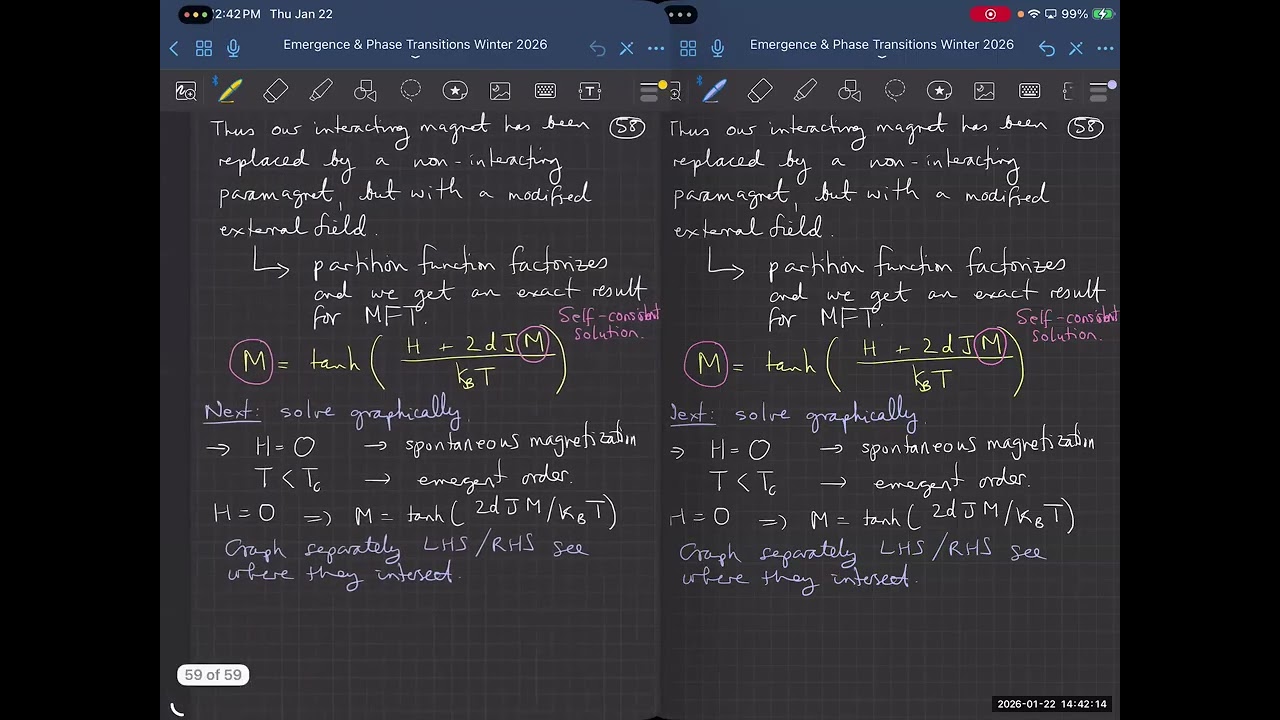 2:42 PM Thu Jan 22
99%
Emergence & Phase Transitions Winter 2026
Emergence & Phase Transitions Winter 2026
Thus our interacting magnet has been 58
replaced by a non-interacting
paramagnet, but with a modified
external field.
↳ partition function factorizes
and we get an exact result
for MFT.
Self-consistent
solution.
M = tanh ( H + 2dJM / k_B T )
Next: solve graphically
→ H = O → spontaneous magnetization
T < Tc → emergent order.
H = O ⇒ M = tanh( 2dJM/K_B T)
Graph separately LHS/RHS see
where they intersect.
59 of 59
Thus our interacting magnet has been 58
replaced by a non-interacting
paramagnet, but with a modified
external field.
↳ partition function factorizes
and we get an exact result
for MFT.
Self-consistent
solution.
M = tanh ( H + 2dJM / k_B T )
ext: solve graphically
⇒ H = O → spontaneous magnetization
T < Tc → emergent order.
H = O ⇒ M = tanh( 2dJM/K_B T)
Graph separately LHS/RHS see
where they intersect.
2026-01-22 14:42:14